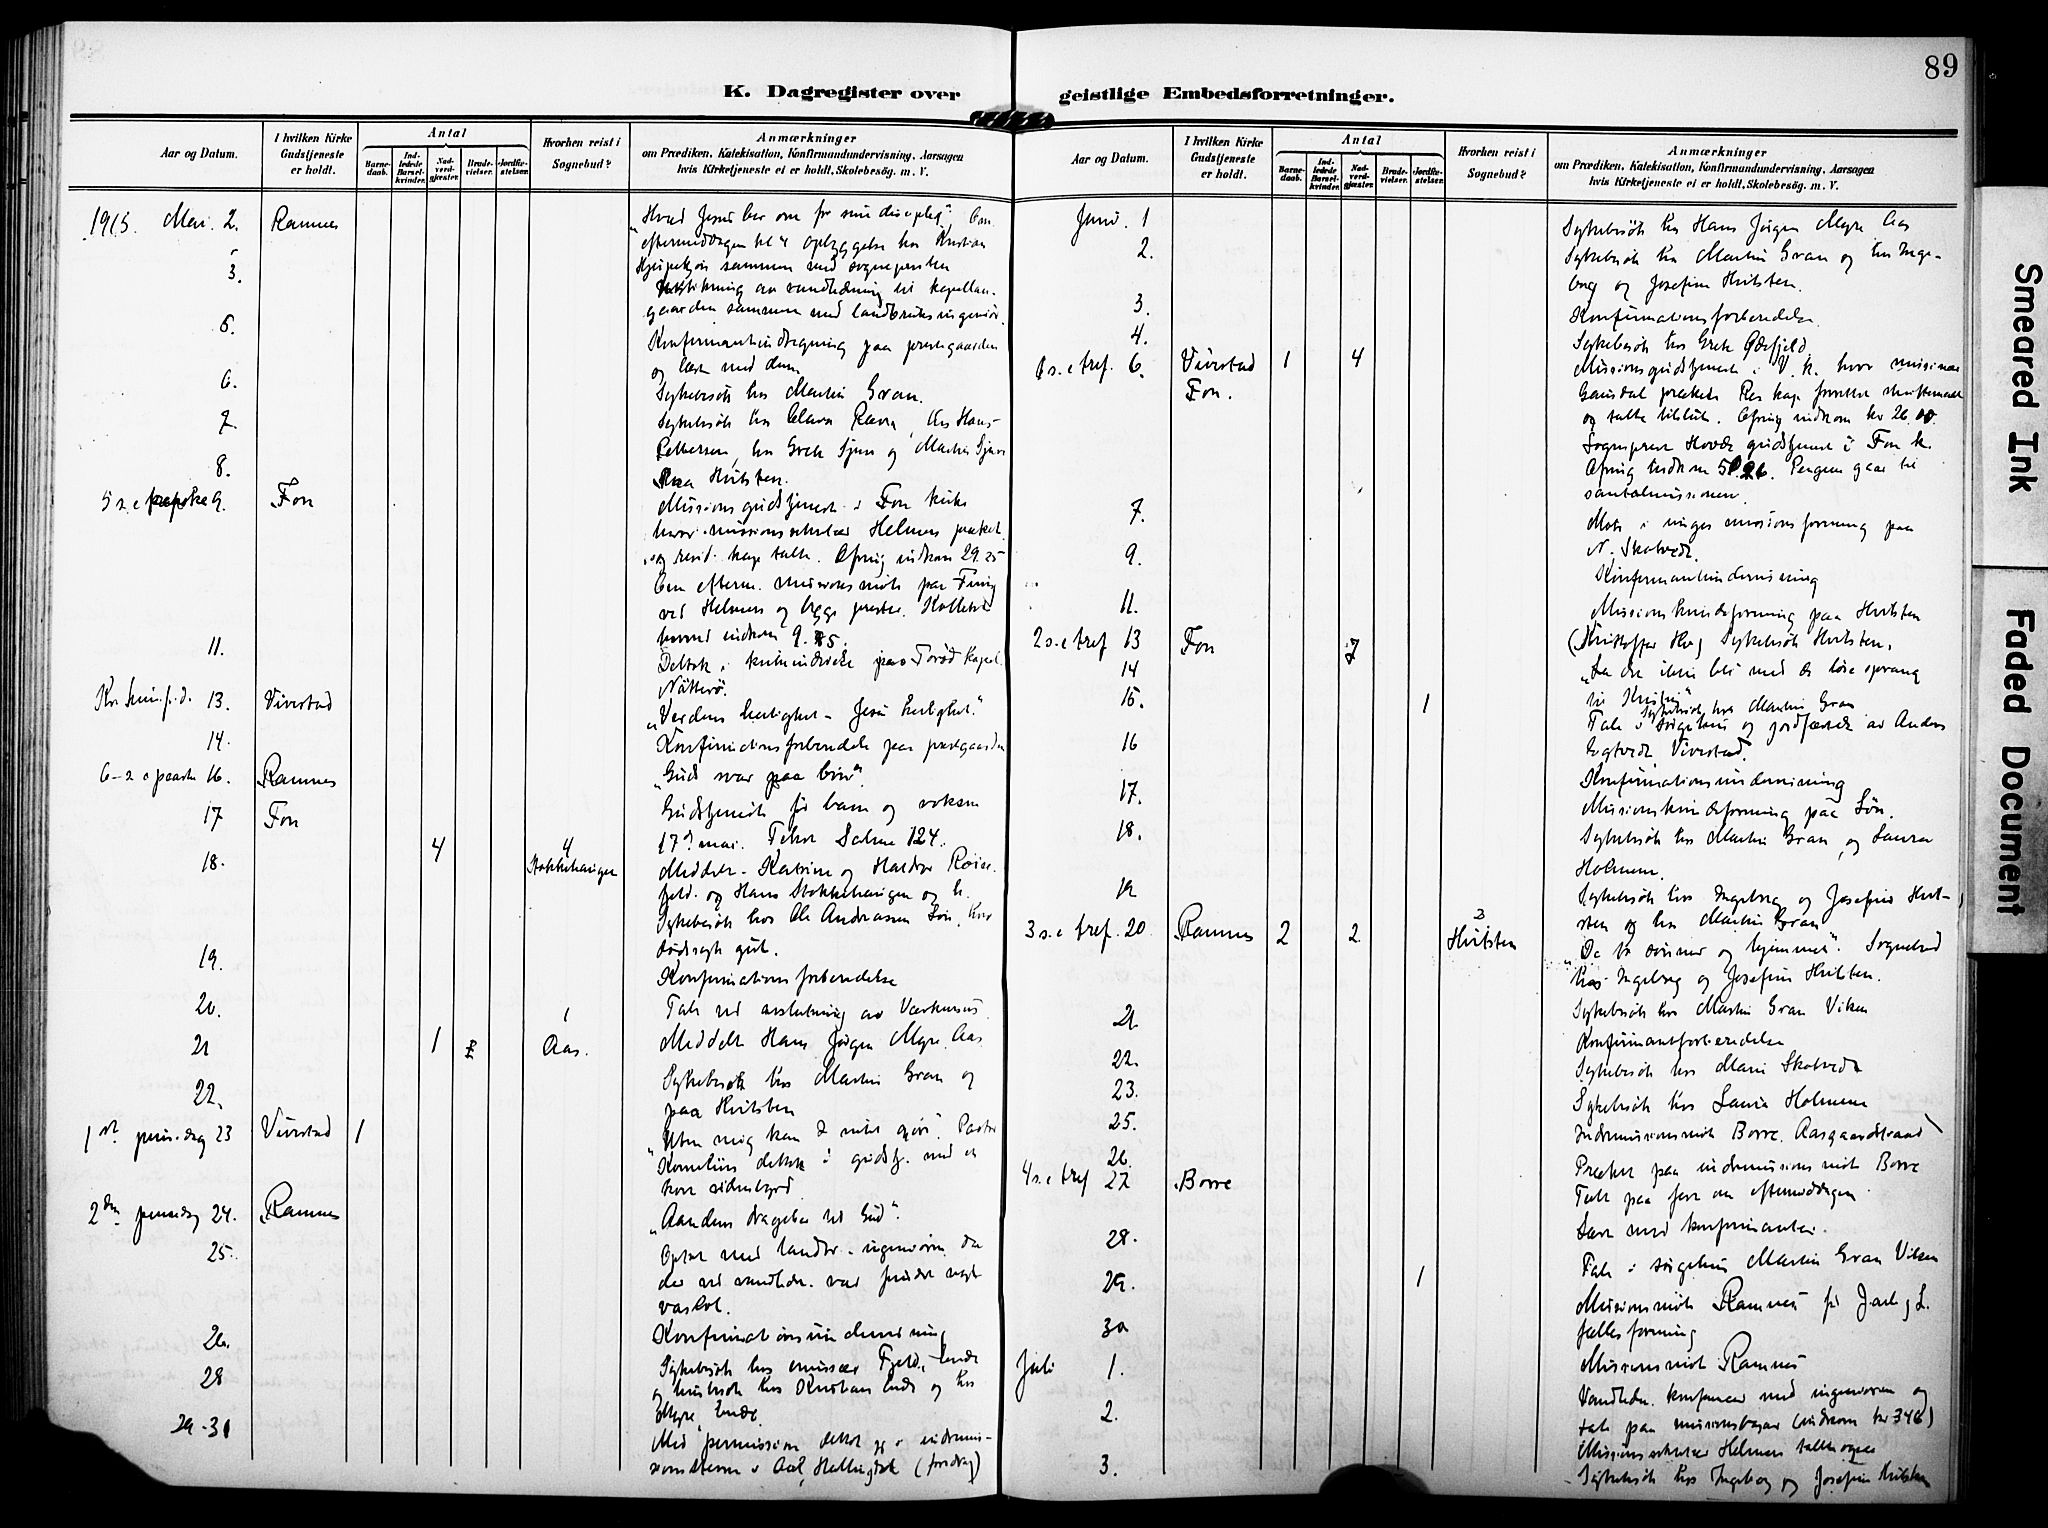 89
K. Dagregister over geistlige Embedsforretninger.
Smeared Ink
Faded Document
Aar og Datum.
I hvilken Kirke Gudstjeneste er holdt.
Antal
Barnedaab.
Indledede Barselkvinder.
Nadverdgjæster.
Brudevielser.
Jordfæstelser.
Hvorhen reist i Sognebud?
Anmærkninger
om Prædiken, Katekisation, Konfirmandundervisning, Aarsagen
hvis Kirketjeneste ei er holdt, Skolebesøg. m. V.
1915. Mai. 2. Ramnes
"Hvad Jesus ber om for sine disciple". Om
eftermiddagen kl 4 opbyggelse hos Kristian
sammen med sogneprsten
3.
av vandledning til kapellan-
gaarden sammen med landbruksingeniør.
5.
Konfirmantindtegning paa prestegaarden
og læst med dem.
6.
Sykebesøk hos Martin Gran.
7.
Sykebesøk hos Clara Ravn, hos Hans
Pettersen, hos Grete
8.
paa Hvitsten.
5 s. e paaske 9. Fon
Missionsgudstjeneste i Fon kirke
hvor missionssekretær Helmers præket
og resid. kap. talte. Ofring indkom 29.25
Om efterm. missionsmøte paa
ved Helmers og begge prester. Kollekt
indkom 9.
11.
Deltok i paa Torød kapel.
Nøtterø.
Kr. himf. d. 13. Vivestad
"Verdens herlighet - Jesu herlighet."
14.
Konfirmationsforberedelse paa prestegaarden
6 s e paaske 16. Ramnes
"Guds svar paa bøn"
17 Fon
Gudstjeneste for barn og voksne
17de mai. Tekst Salme 124.
18. 4 4 Stokkehaugen
Meddelt Katrine og Halvor
og Hans Stokkehaugen og h.
Sykebesøk hos Ole Andreassen
dødssyk gut.
19.
Konfirmationsforberedelse
20.
Tale ved avslutning av
21 1 1 Aas.
Meddelt Hans Jørgen Myre Aas
22.
Sykebesøk hos Martin Gran og
paa Hvitsten
1st pinsedag 23 Vivestad 1
"Uten mig kan I intet gjøre". Pastor
Kornelius deltok i gudstj. med et
kort vidnesbyrd
2den pinsedag 24. Ramnes
"Aandens dragelse til Gud".
25.
Optat med landbr. ingeniøren da
der ved vandledn. var
26.
Konfirmationsundervisning
28
Sykebesøk hos emissær Fjeld,
og husbesøk hos Kristian og hos
Myre
29-31
Med permission deltok jeg i indremis-
i Aal, Hallingdal (foredrag)
Aar og Datum.
I hvilken Kirke Gudstjeneste er holdt.
Antal
Barnedaab.
Indledede Barselkvinder.
Nadverdgjæster.
Brudevielser.
Jordfæstelser.
Hvorhen reist i Sognebud?
Anmærkninger
om Prædiken, Katekisation, Konfirmandundervisning, Aarsagen
hvis Kirketjeneste ei er holdt, Skolebesøg. m. V.
Juni. 1
Sykebesøk hos Hans Jørgen Myre Aas
2.
Sykebesøk hos Martin Gran og hos Inge-
borg og Josefine Hvitsten.
3.
Konfirmationsforberedelse.
4.
Sykebesøk hos Grete
1 s. e tref. 6. Vivestad 1 4
Fon.
Missionsgudstjeneste i V. k. hvor missionær
Gausdal prækede. Res kap forrettet skriftemaal
og talte tilslut. Ofring indkom kr 26.00.
Sogneprest gudstjeneste i Fon k.
Ofring indkom 50.26. Pengene gaar til
santalmissionen.
7.
Møte i unges missionsforening paa
N. Skotvedt.
9.
Konfirmantundervisning
11.
Missionskvindeforening paa Hvitsten
2 s. e tref 13 Fon 7
Sykebesøk Hvitsten.
14
"La det ikke bli med de løse sprang
til Kristus"
15. 1
Sykebesøk hos Martin Gran
Tale i sørgehus og jordfæstet av Anders
Vivestad.
16
Konfirmationsundervisning
17.
Missionskvindeforening paa Løn.
18.
Sykebesøk hos Martin Gran, og Laura
Holmene.
19
Sykebesøk hos Ingeborg og Josefine Hvit-
sten og hos Martin Gran
3 s. e tref. 20. Ramnes 2 2 2 Hvitsten
"De to sønner og hjemmet". Sognebud
hos Ingeborg og Josefine Hvitsten.
21
Sykebesøk hos Martin Gran Viken
22.
Konfirmantforberedelse
23.
Sykebesøk hos Marie Skotvedt
25.
Sykebesøk hos Laura Holmene
26.
Indremissionsmøte Borre. Aasgaardstrand
4 s. e tref 27 Borre
Præket paa indremissionsmøte Borre
Talt paa om eftermiddagen
28.
Læst med konfirmanter.
29. 1
Tale i sørgehus Martin Gran Viken
30
Missionsmøte Ramnes for Jarls. og L.
fællesforening
Juli 1.
Missionsmøte Ramnes
2.
Vandledn. konferanser med ingeniøren og
tale paa missionsbasar (indkom kr 346)
Missionssekretær Helmers talte ogsaa
3.
Sykebesøk hos Ingeborg og Josefine Hvitsten